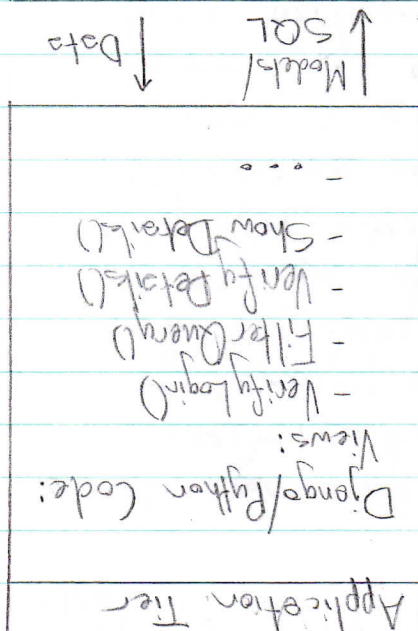 Application Tier
Django/Python Code:
Views:
- VerifyLogin()
- FilterQuery()
- Verify Details()
- Show Details()
- ...
Models/ Data
SQL